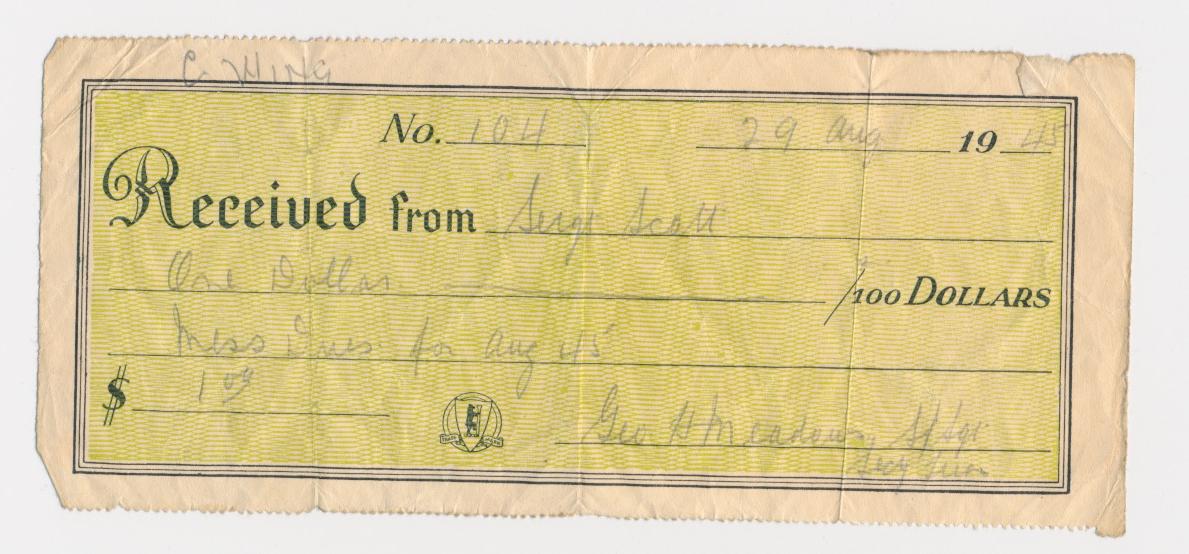 C WING
No. 104 29 Aug 1945
Received from Sergt Scott
One Dollar /100 DOLLARS
Mess Dues for Aug 45
$ 1 00
Geo H Meadows S/Sgt
Secy Treas